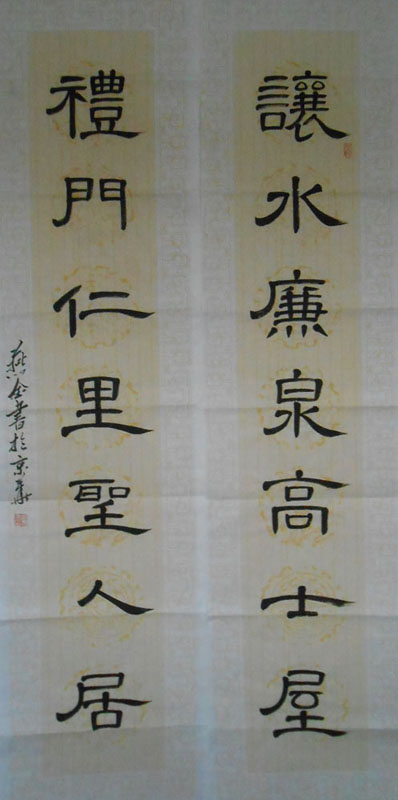 讓水廉泉高士屋
禮門仁里聖人居
燕金書於京華